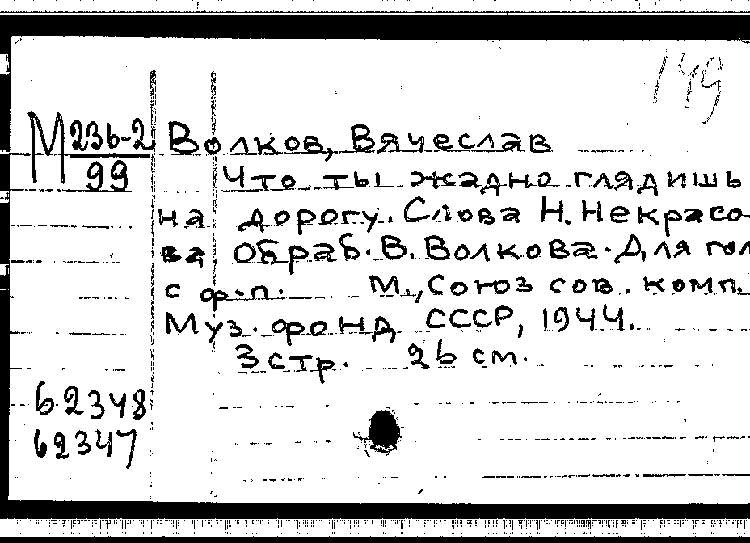 149
М 23б-2 Волков, Вячеслав
99 Что ты жадно глядишь
на дорогу. Слова Н. Некрасо-
ва. Обраб. В. Волкова. Для гол
с ф.-п. М., Союз сов. комп.
Муз. фонд СССР, 1944.
3 стр. 26 см.
62348
62347